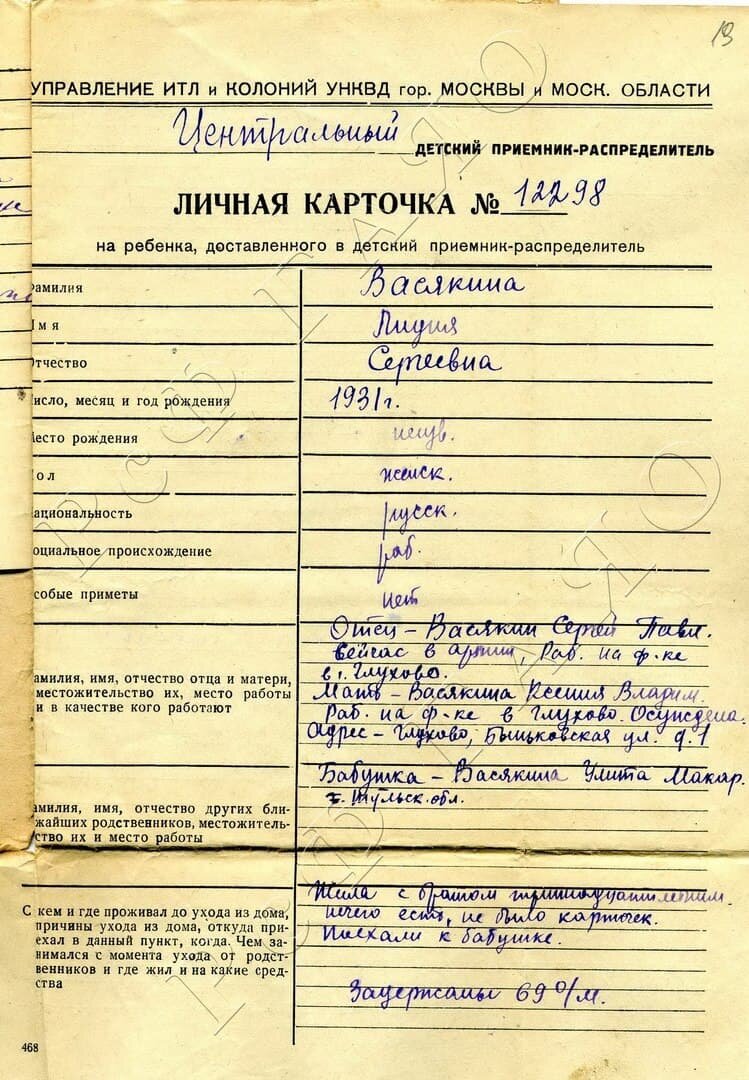 19
УПРАВЛЕНИЕ ИТЛ и КОЛОНИЙ УНКВД гор. МОСКВЫ и МОСК. ОБЛАСТИ
Центральный ДЕТСКИЙ ПРИЕМНИК-РАСПРЕДЕЛИТЕЛЬ
ЛИЧНАЯ КАРТОЧКА № 12298
на ребенка, доставленного в детский приемник-распределитель
амилия Васякина
мя Лидия
тчество Сергеевна
исло, месяц и год рождения 1931 г.
есто рождения неизв.
ол женск.
ациональность русск.
оциальное происхождение раб.
собые приметы нет
Отец – Васякин Сергей Павл.
сейчас в армии, Раб. на ф-ке
в г. Глухово.
амилия, имя, отчество отца и матери,
местожительство их, место работы
и в качестве кого работают
Мать – Васякина Ксения Владим.
Раб. на ф-ке в Глухово. Осуждена.
Адрес – Глухово, Быньковская ул. д. 1
Бабушка – Васякина Улита Макар.
Тульск. обл.
амилия, имя, отчество других бли-
жайших родственников, местожитель-
ство их и место работы
С кем и где проживал до ухода из дома,
причины ухода из дома, откуда при-
ехал в данный пункт, когда. Чем за-
нимался с момента ухода от родст-
венников и где жил и на какие сред-
ства
Жила с братом тринадцатилетним.
нечего есть, не было карточек.
Поехали к бабушке.
Задержаны 69 о/м.
468
РГАЯО